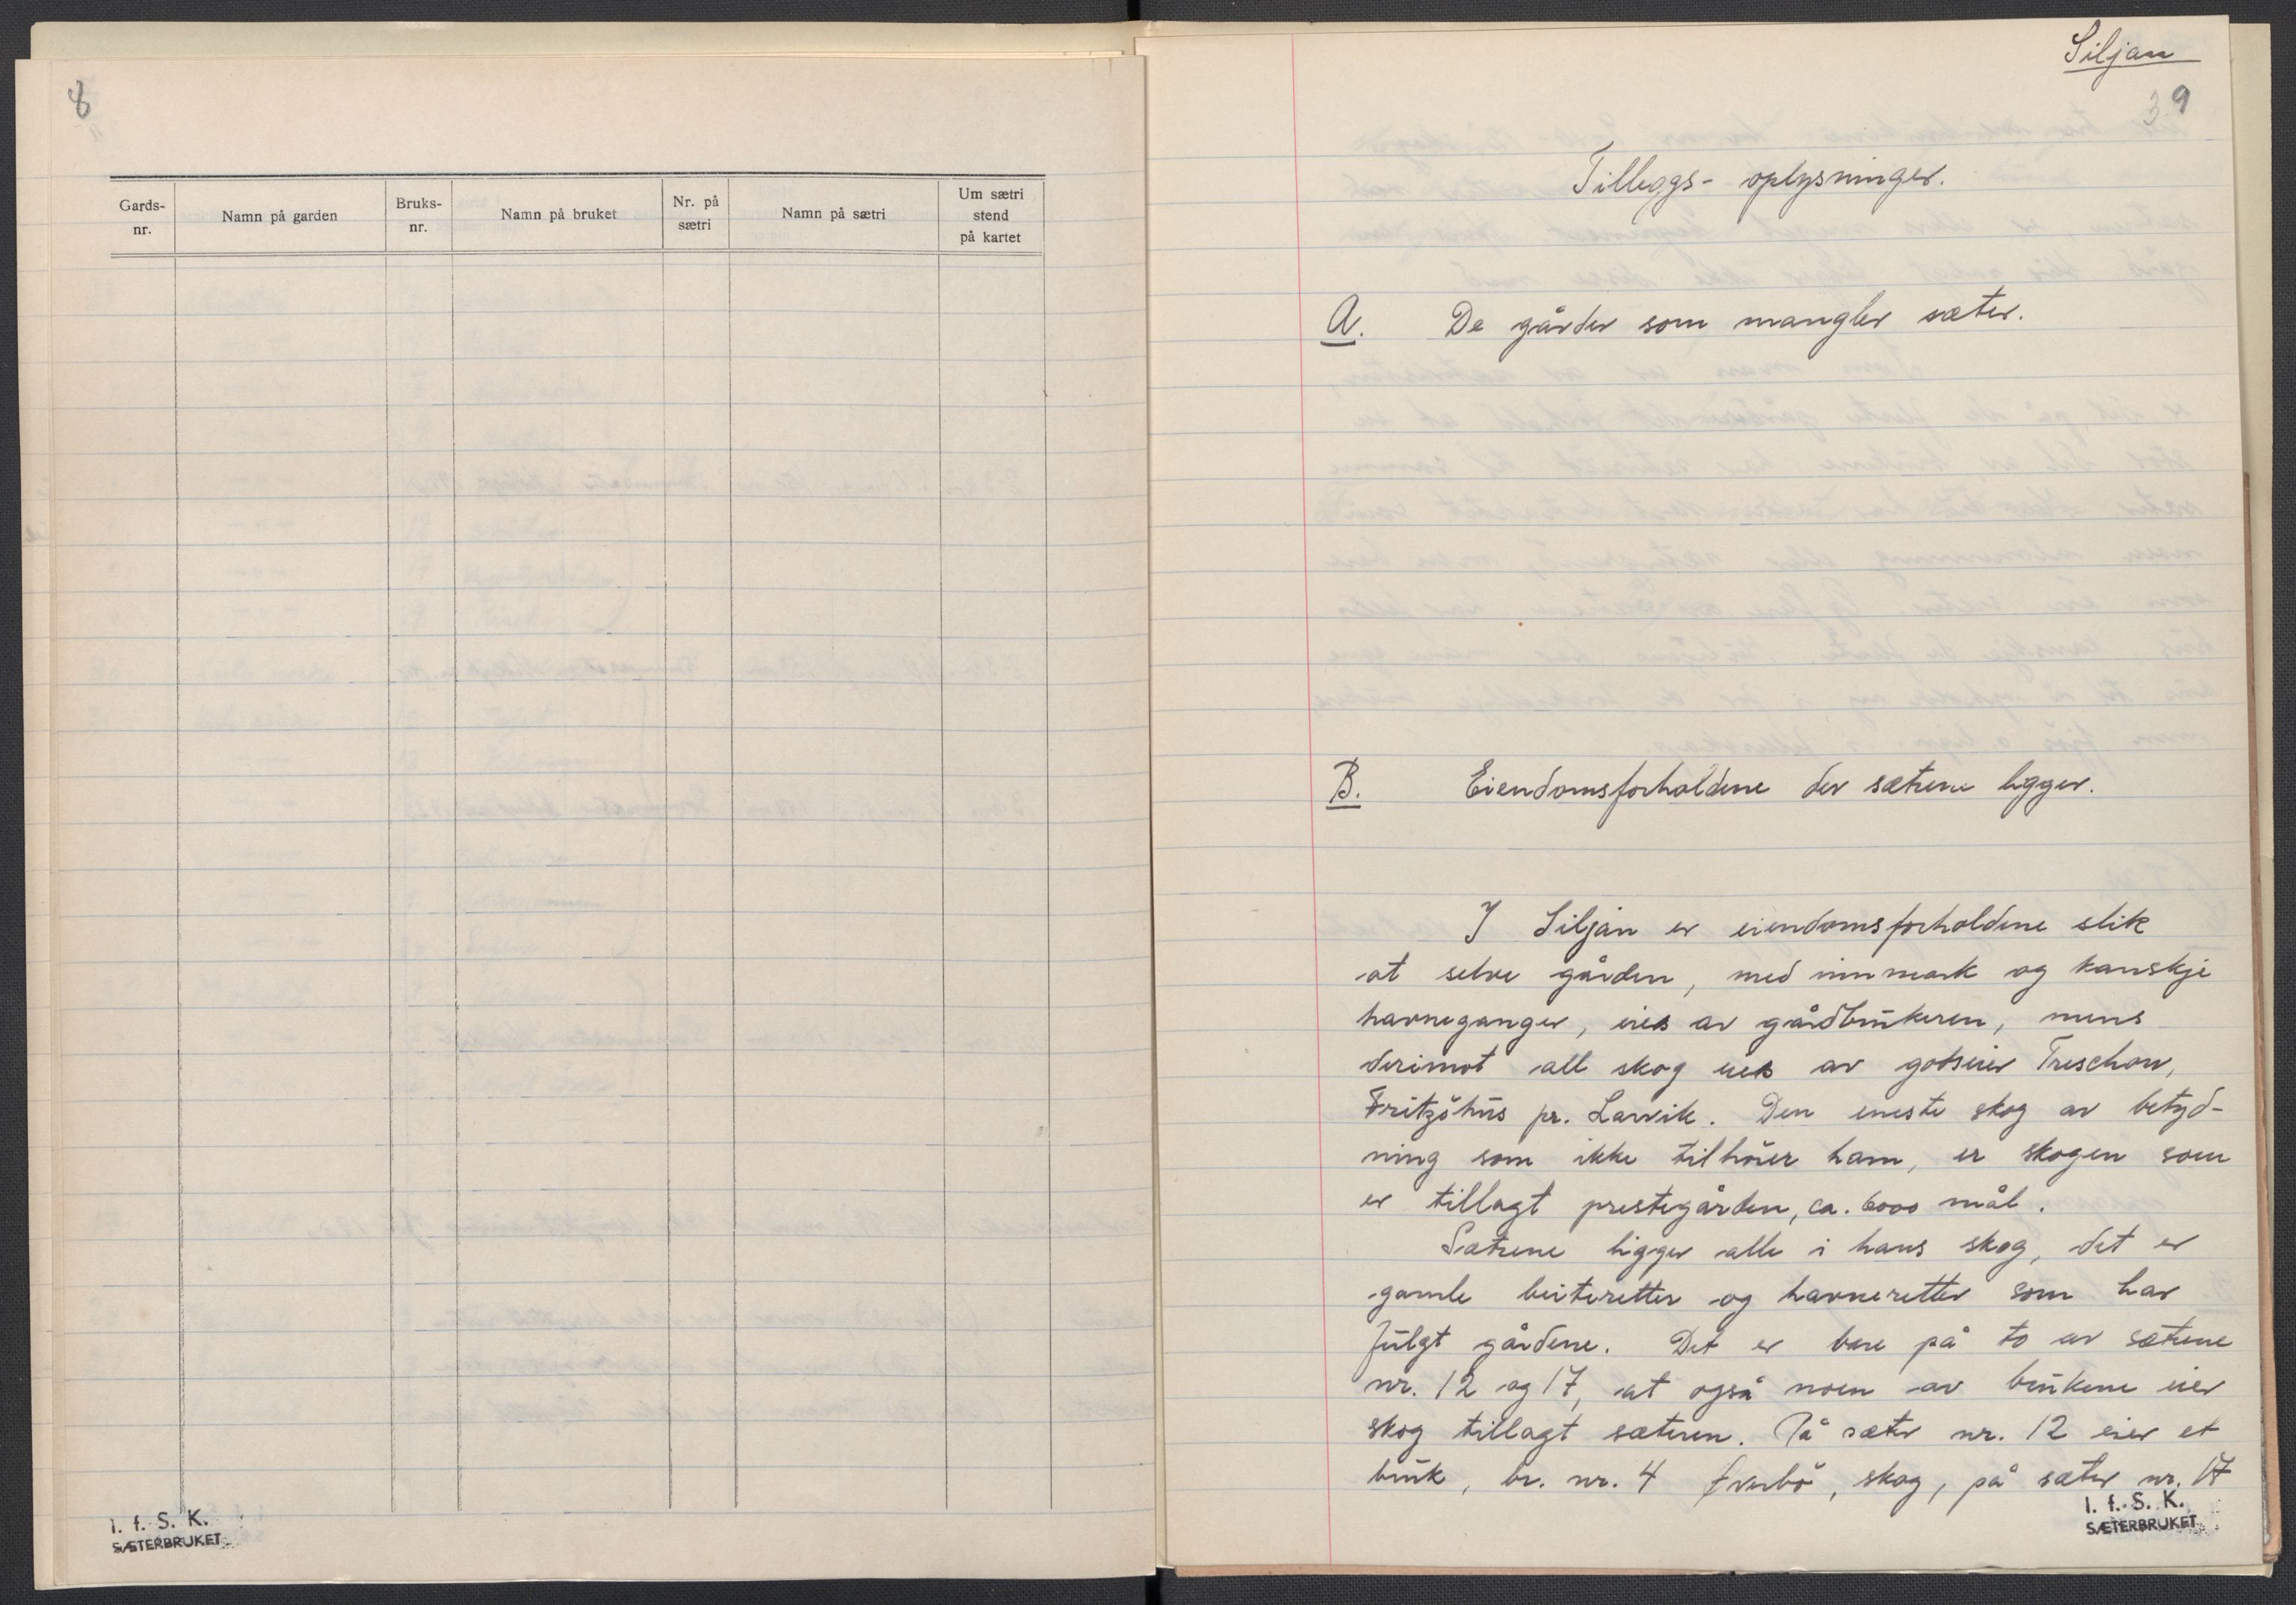 8
Gards-
nr.
Namn på garden
Bruks-
nr.
Namn på bruket
Nr. på
sætri
Namn på sætri
Um sætri
stend
på kartet
I. f. S. K.
SÆTERBRUKET
Siljan
39
Tilleggs- oplysninger.
A. De gårder som mangler sæter.
B. Eiendomsforholdene der sætrene ligger.
I Siljan er eiendomsforholdene slik
at selve gården, med innmark og kanskje
havneganger, eies av gårdbrukeren, mens
derimot all skog eies av godseier Treschow,
Fritzöhus pr. Larvik. Den eneste skog av betyd-
ning som ikke tilhörer ham, er skogen som
er tillagt prestegården, ca. 6000 mål.
Sætrene ligger alle i hans skog, det er
gamle beiteretter og havneretter som har
fulgt gårdene. Det er bare på to av sætrene
nr. 12 og 17, at også noen av brukene eier
skog tillagt sæteren. På sæter nr. 12 eier et
bruk, br. nr. 4 , skog, på sæter nr. 17
I. f. S. K.
SÆTERBRUKET